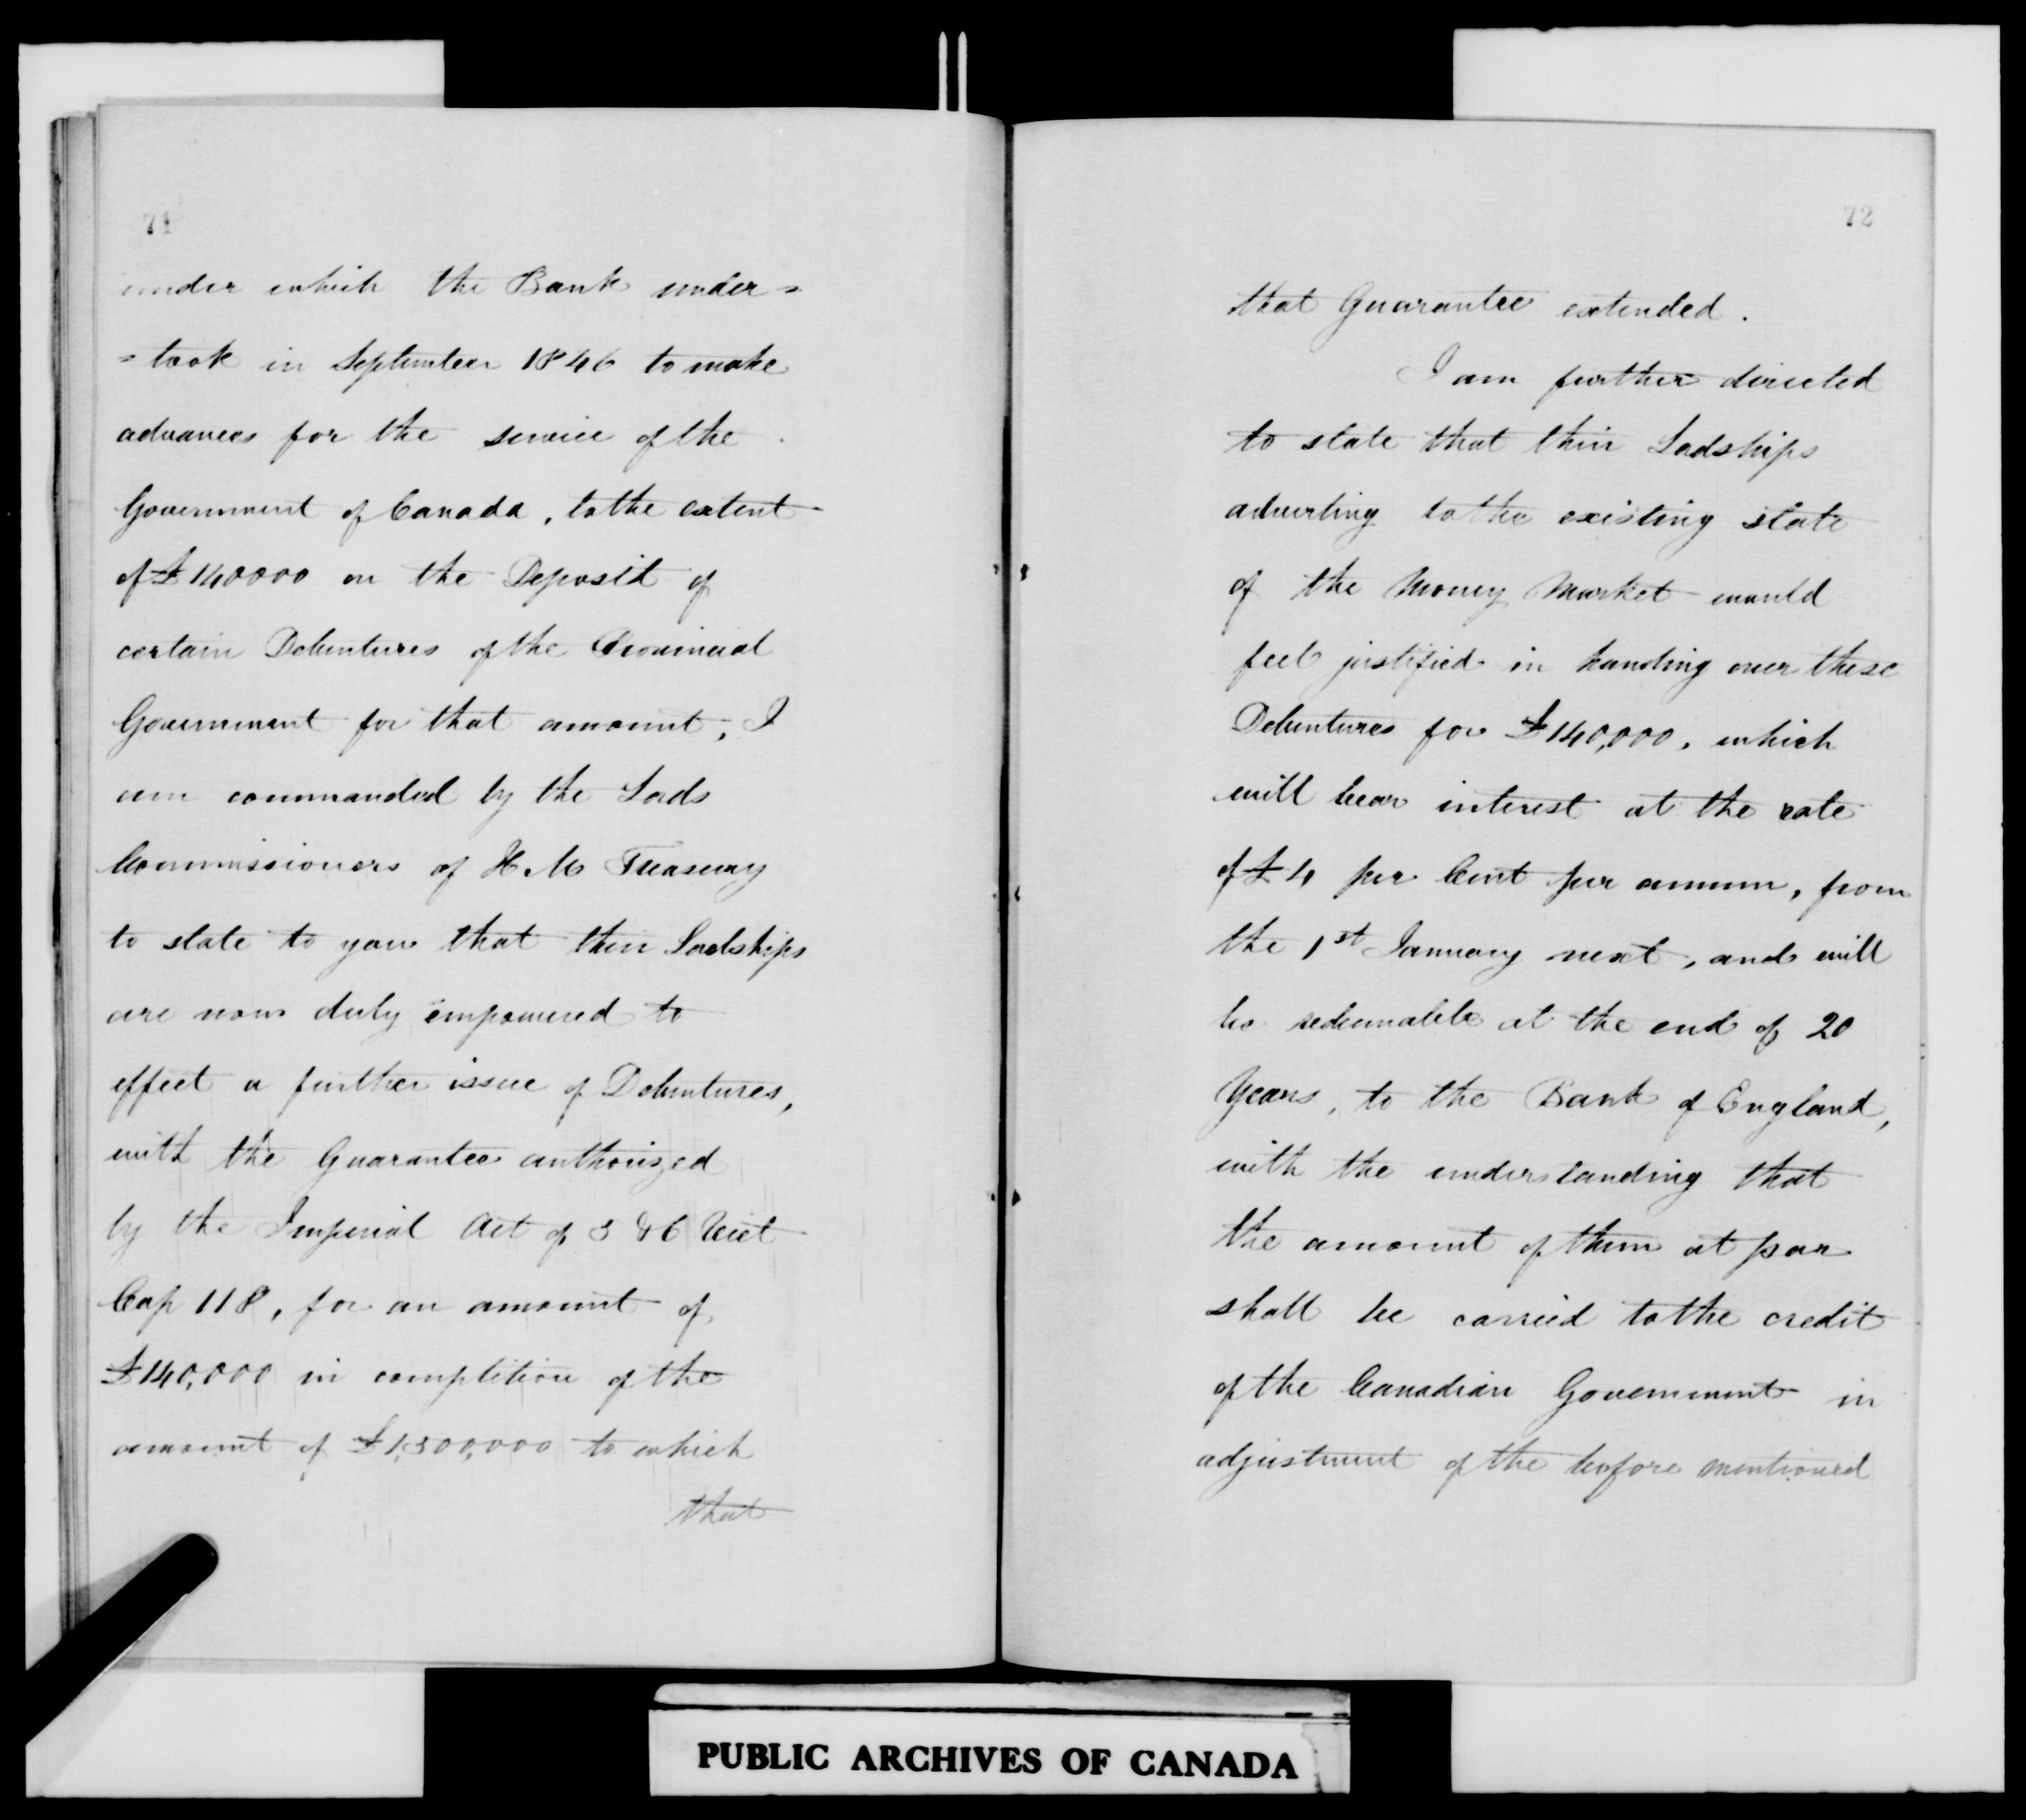 71
under which the Bank under=
=took in September 1846 to make
advances for the service of the
Government of Canada, to the extent
of £140000 on the Deposit of
certain Debentures of the Provincial
Government for that amount, I
am commanded by the Lords
Commissioners of H. M Treasury
to state to you that their Lordships
are now duly empowered to
effect a further issue of Debentures,
with the Guarantee authorized
by the Imperial Act of 5 & 6 Vict
Cap 118, for an amount of
£140,000 in completion of the
amount of £1,500,000 to which
that
72
that Guarantee extended.
I am further directed
to state that their Lordships
adverting to the existing state
of the Money Market would
feel justified in handing over these
Debentures for £140,000, which
will bear interest at the rate
of £4 per Cent per annum, from
the 1st January next, and will
be redeemable at the end of 20
Years, to the Bank of England,
with the understanding that
the amount of them at par
shall be carried to the credit
of the Canadian Government in
adjustment of the before mentioned
PUBLIC ARCHIVES OF CANADA